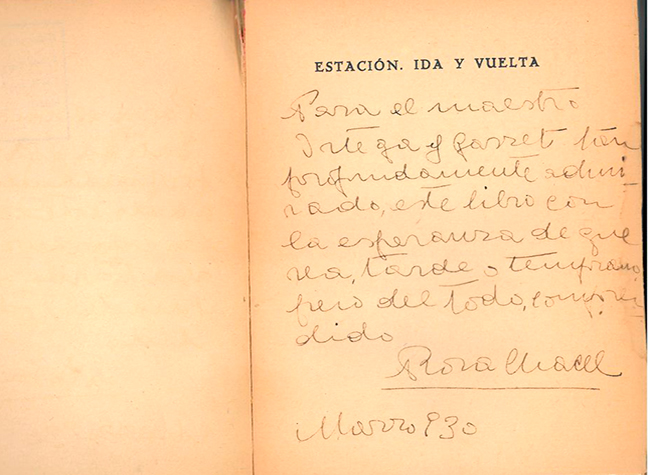 ESTACIÓN. IDA Y VUELTA
Para el maestro
Ortega y Gasset tan
profundamente admi-
rado, este libro con
la esperanza de que
sea, tarde o temprano
pero del todo, compren-
dido
Rosa Chacel
Marzo 930